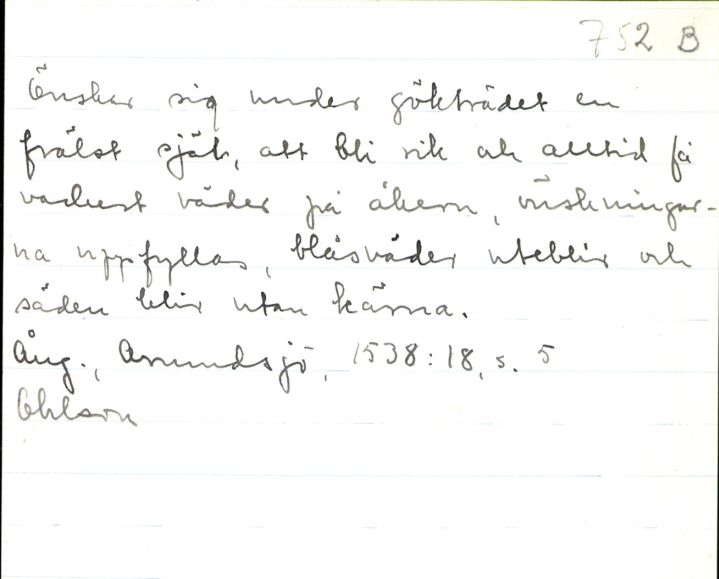 752 B
Önskar sig under gökträdet en
frälst själ, att bli rik och alltid få
vackert väder på åkern, önskningar-
na uppfyllas, blåsväder uteblir och
säden blir utan kärna.
Ång., Anundsjö, 1538:18, s. 5
Ohlson